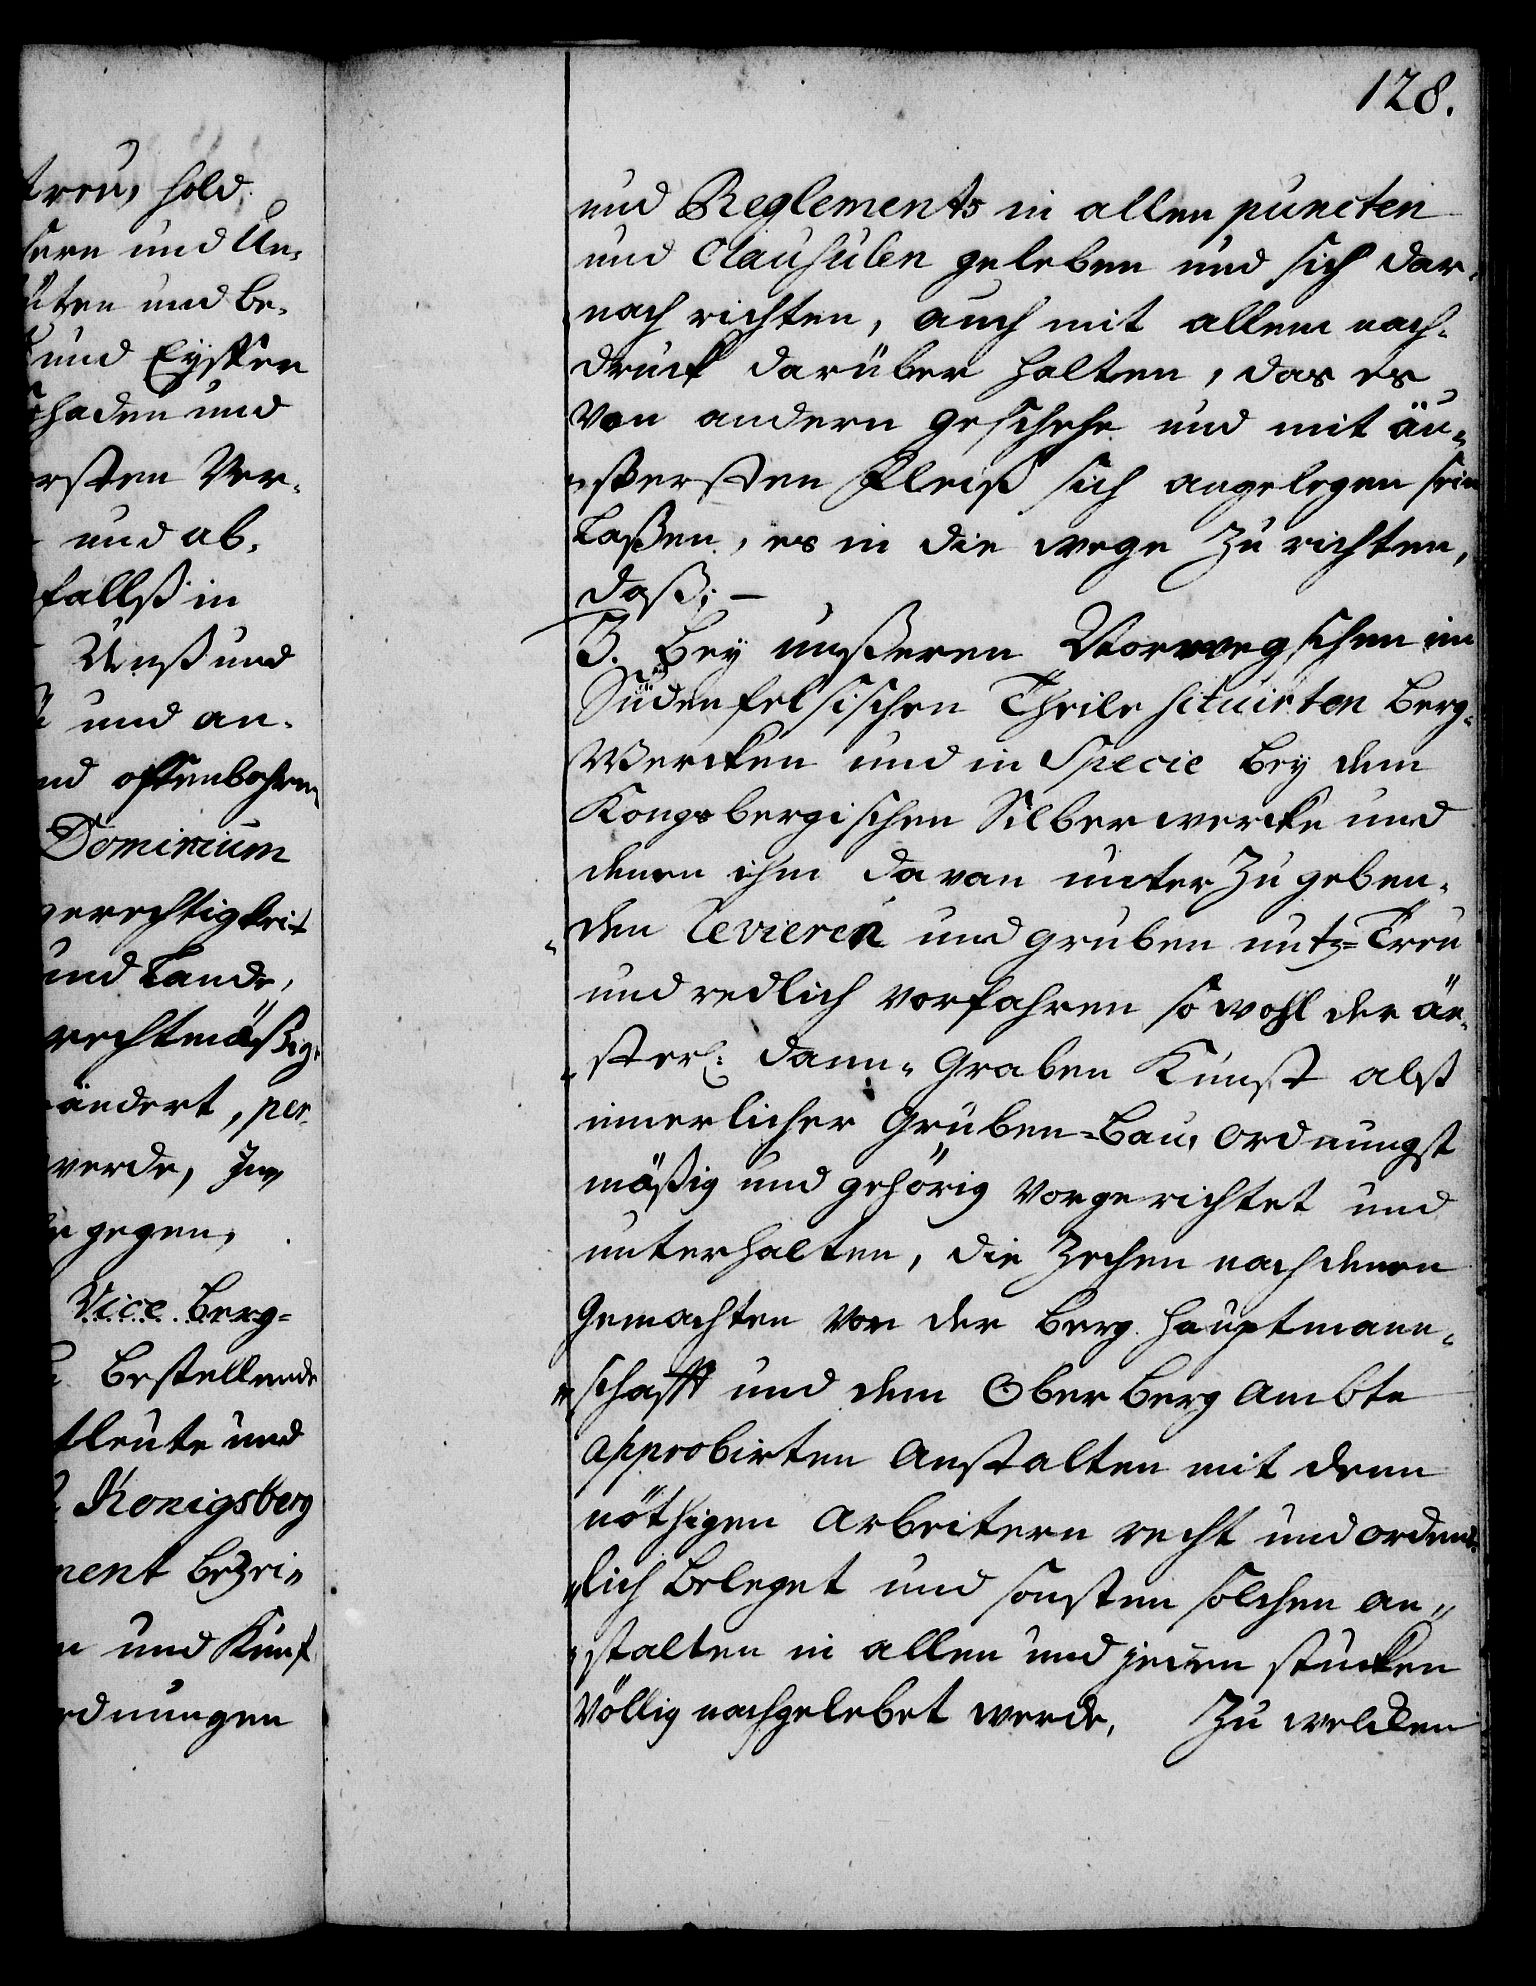 treu, hold
sern und Un-
üten und be-
und Eyffer
Schaden und
ersten Ver-
und ab-
falls in
Unß und
und an-
nd offenbahren
Dominium
gerechtigkeit
und Lande,
rechtmäßig-
ändert, per-
werde, Im
gegen,
Vice Berg-
bestellende
tleute und
Konigsberg
ment bezei-
und Kunf-
rdnungen
128.
und Reglements in allen puncten
und Clausulen geleben und sich dar-
nach richten, auch mit allem nach-
druck darüber halten, das es
von andern geschehe und mit äu-
ßersten Fleiß sich angelegen sein
Laßen, es in die wege zu richten,
daß; —
3. Bey unßeren Norwegschen im
Südenfelsischen Theile situirten Berg-
Wercken und in Specie bey dem
Kongsbergischen Silberwercke und
denen ihm davan unter zu geben-
den revieren und gruben nutz- Treu
und redlich vorfahren so wohl der äu-
serl: dam- Graben Kunst alß
innerlicher Gruben-Bau, ordnungst
mäßig und gehörig vorgerichtet und
unterhalten, die Zechen nach denen
Gemachten von der Berg Hauptmann-
schafft und dem Ober Berg Ambte
approbirten Anstalten mit denn
nöthigen Arbeitern recht und ordent-
lich beleget und sonsten solchen an-
stalten in allen und jeden stücken
Völlig nachgelebet werde, Zu welchen